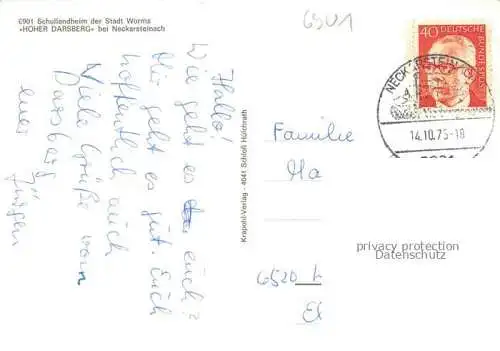 6901 Schullandheim der Stadt Worms
«HOHER DARSBERG» bei Neckarsteinach
6901
Hallo!
Wie geht es euch?
Mir geht es gut. Euch
hoffentlich auch
Viele Grüße vom
Darsberg
euer
Jürgen
Krapohl-Verlag - 4041 Schloß Hülchrath
40
DEUTSCHE
BUNDESPOST
NECKARSTEINACH
14.10.75-18
Familie
Ma
6520
privacy protection
Datenschutz